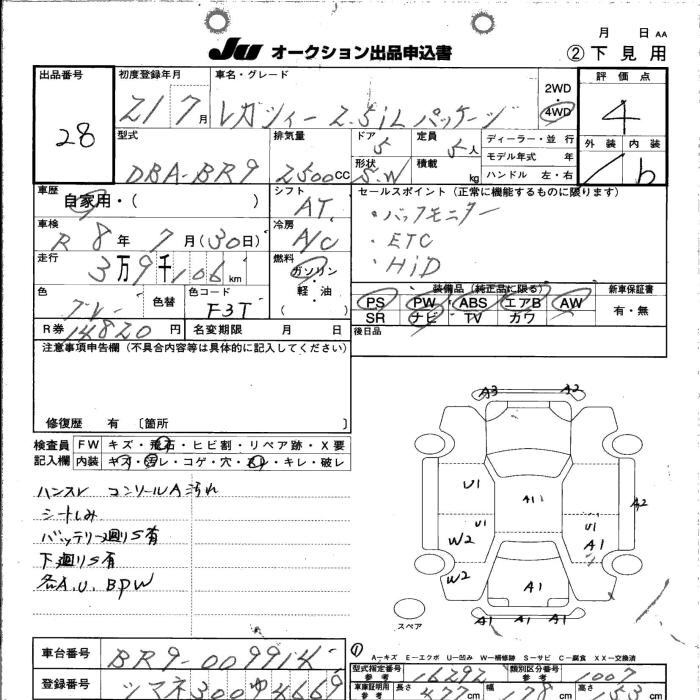 月 日 AA
JU オークション出品申込書 ②下見用
出品番号 28
初度登録年月 21 7月
車名・グレード レガシィー 2.5iL パッケージ
2WD 4WD
評価点 4
外装 内装 b
型式 DBA-BR9
排気量 2500CC
ドア 5 形状 S.W
定員 5人 積載 kg
ディーラー・並行
モデル年式 年
ハンドル 左・右
車歴 自家用・( )
シフト AT
セールスポイント (正常に機能するものに限ります)
・バックモニター
・ETC
・HiD
車検 R 8年 7月(30日)
冷房 A/C
走行 3万9千106km
燃料 ガソリン・軽・油 ( )
装備品(純正品に限る) 新車保証書
PS PW ABS エアB AW 有・無
SR ナビ TV カワ
色 色替
色コード F3T
R券 14820円 名変期限 月 日
後日品
注意事項申告欄(不具合内容等は具体的に記入してください)
修復歴 有 〔箇所 〕
検査員記入欄
FW キズ・飛石・ヒビ割・リペア跡・X要
内装 キズ・汚レ・コゲ・穴・スレ・キレ・破レ
ハンスレ コンソールA汚れ
シートしみ
バッテリー廻りS有
下廻りS有
各A.U.BPW
A3 A2
U1 A11 A2
U1 U1
W2 A1
W2 A1
A1 A1 A1
スペア
A-キズ E-エクボ U-凹み W-補修跡 S-サビ C-腐食 XX-交換済
車台番号 BR9-009914
登録番号 シマネ300ゆ4669
型式指定番号 参考 16292
類別区分番号 参考 1007
車庫証明用 参考 長さ 477cm 幅 178cm 高さ 153cm